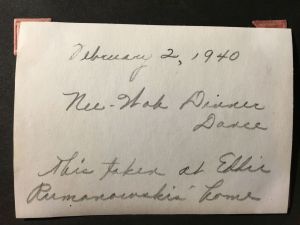 February 2, 1940
Nee-Wah Dinner
Dance
This taken at Effie
Rumanowskis' home